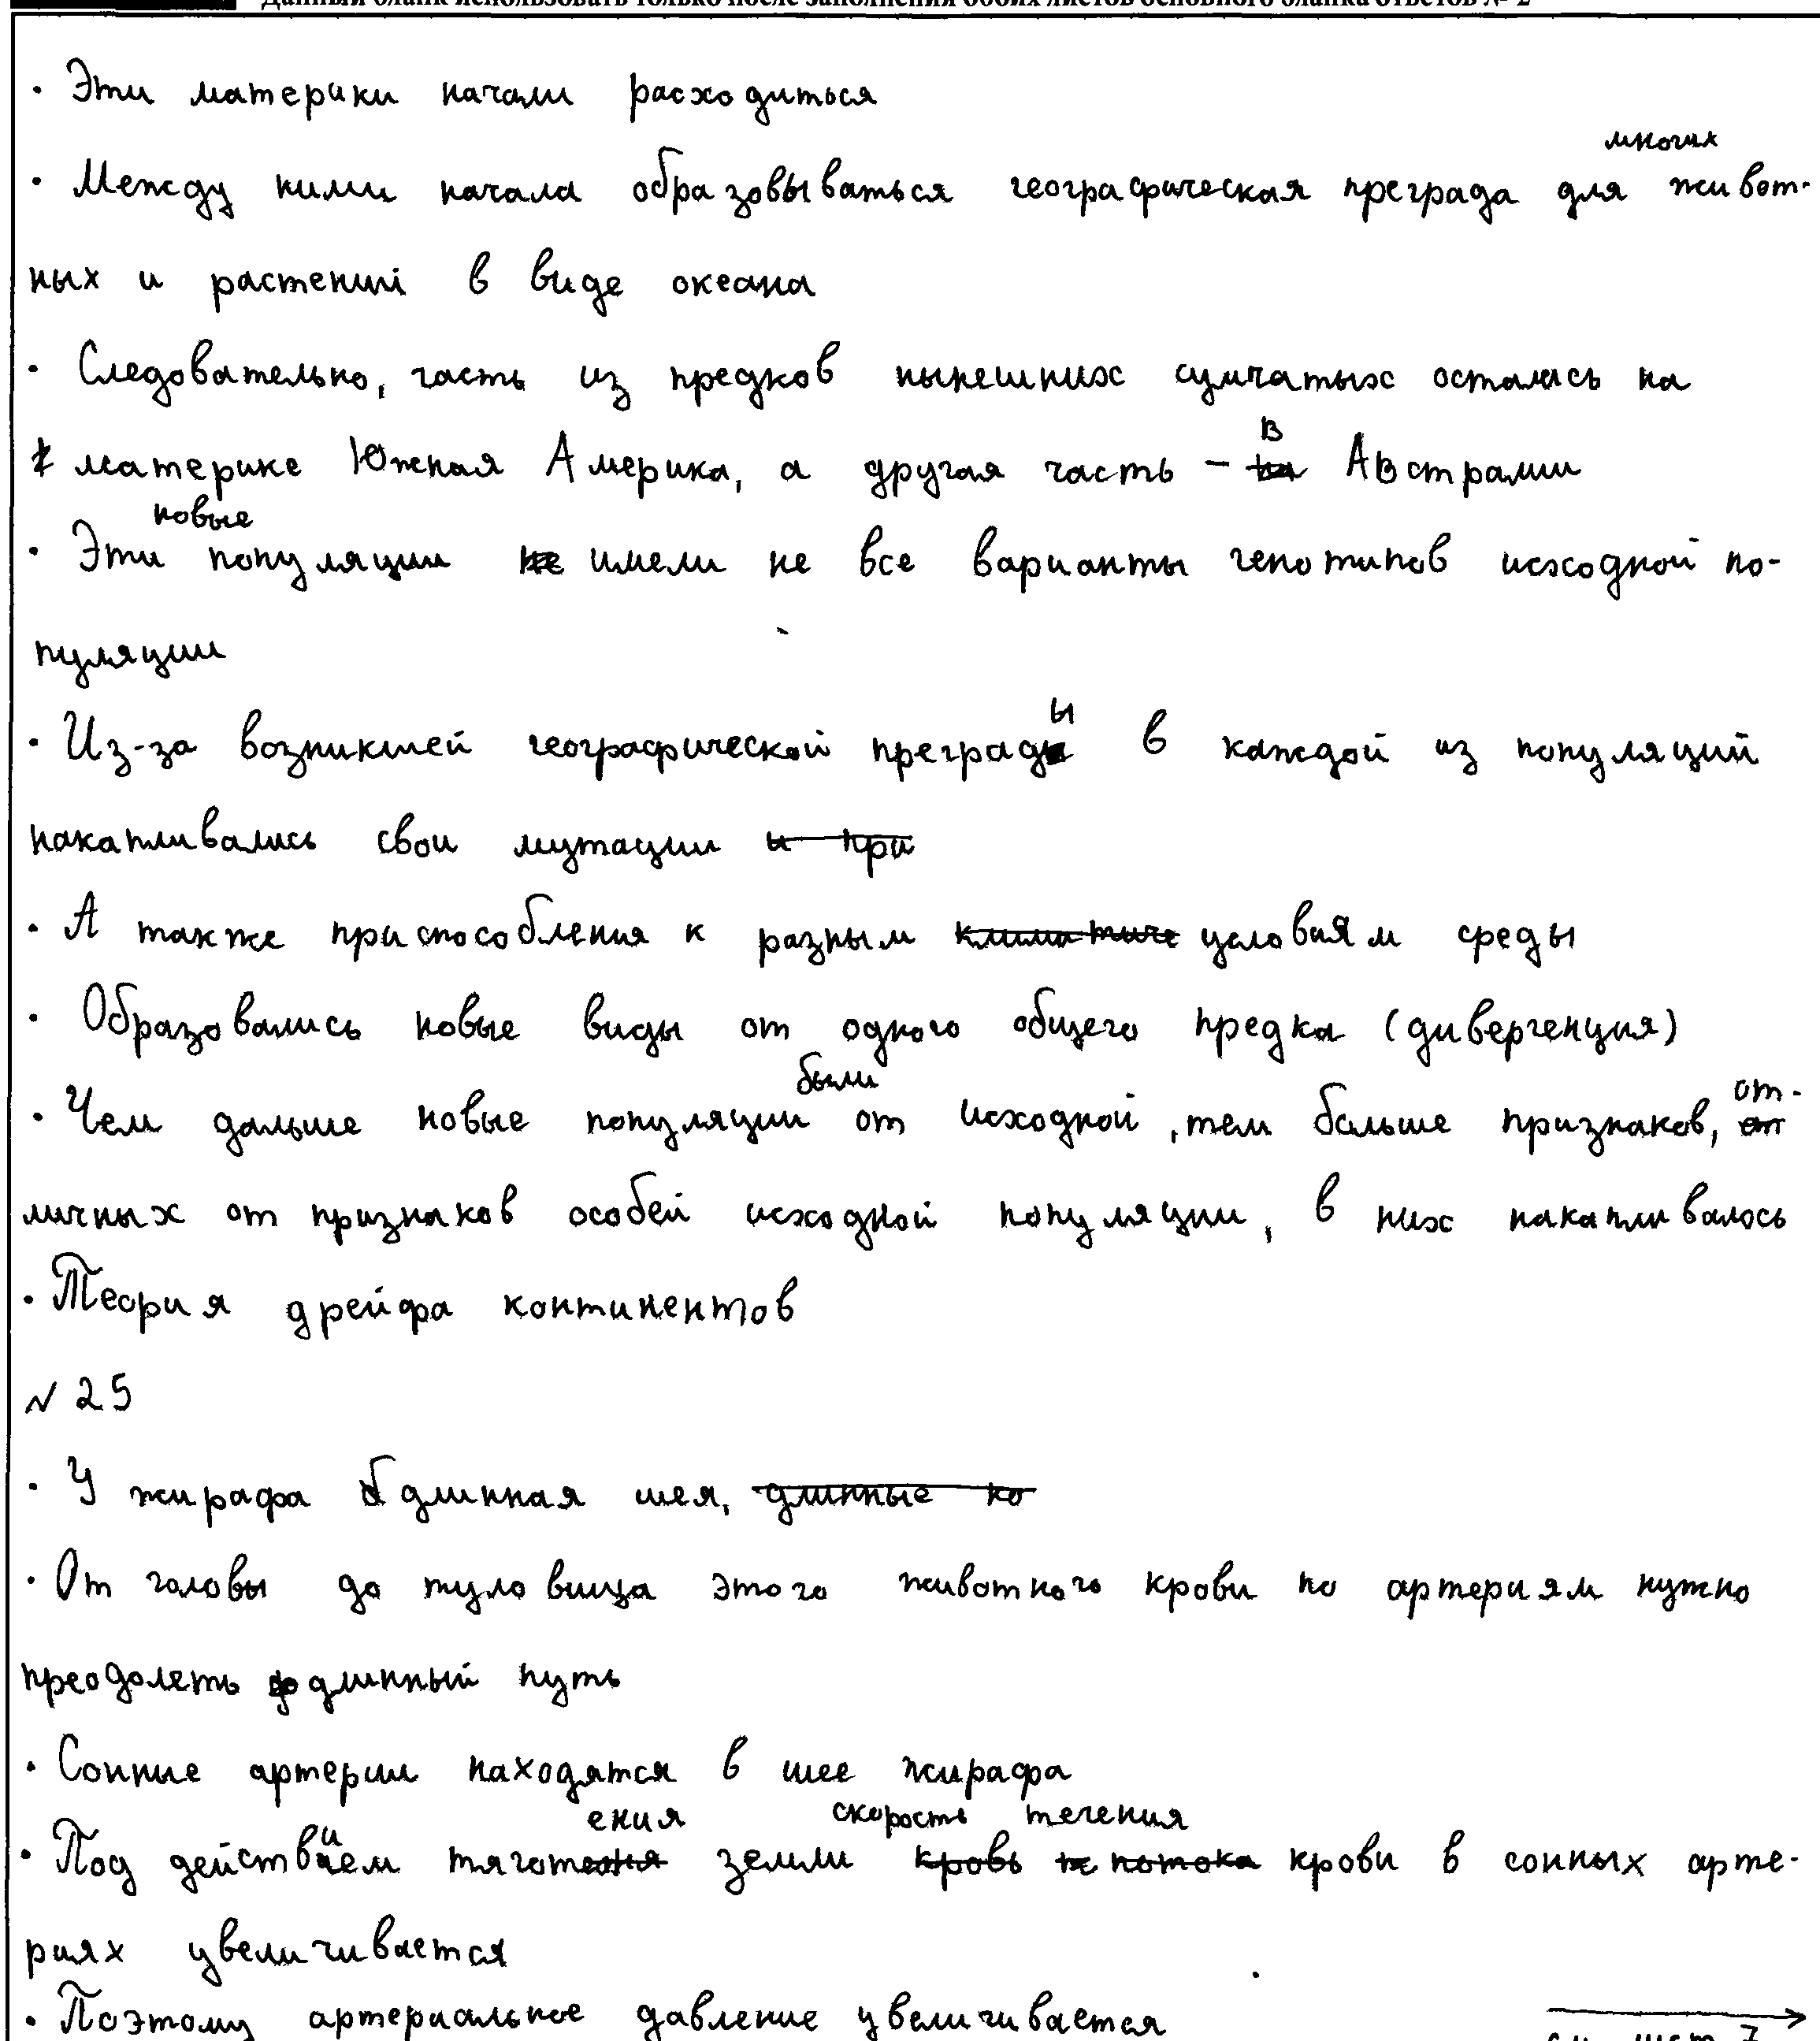 Данный бланк использовать только после заполнения обоих листов основного бланка ответов № 2
· Эти материки начали расходиться
· Между ними начала образовываться географическая преграда для многих живот-
ных и растений в виде океана
· Следовательно, часть из предков нынешних сумчатых осталась на
материке Южная Америка, а другая часть - в Австралии
· Эти новые популяции имели не все варианты генотипов исходной по-
пуляции
· Из-за возникшей географической преграды в каждой из популяций
накапливались свои мутации и при
· А также приспособления к разным климатиче условиям среды
· Образовались новые виды от одного общего предка (дивергенция)
· Чем дальше новые популяции были от исходной, тем больше признаков, от-
личных от признаков особей исходной популяции, в них накапливалось
· Теория дрейфа континентов
№ 25
· У жирафа длинная шея, длинные ко
· От головы до туловища этого животного крови по артериям нужно
преодолеть длинный путь
· Сонные артерии находятся в шее жирафа
· Под действием тяготения земли кровь не потока скорость течения крови в сонных арте-
риях увеличивается
· Поэтому артериальное давление увеличивается
см. лист 7